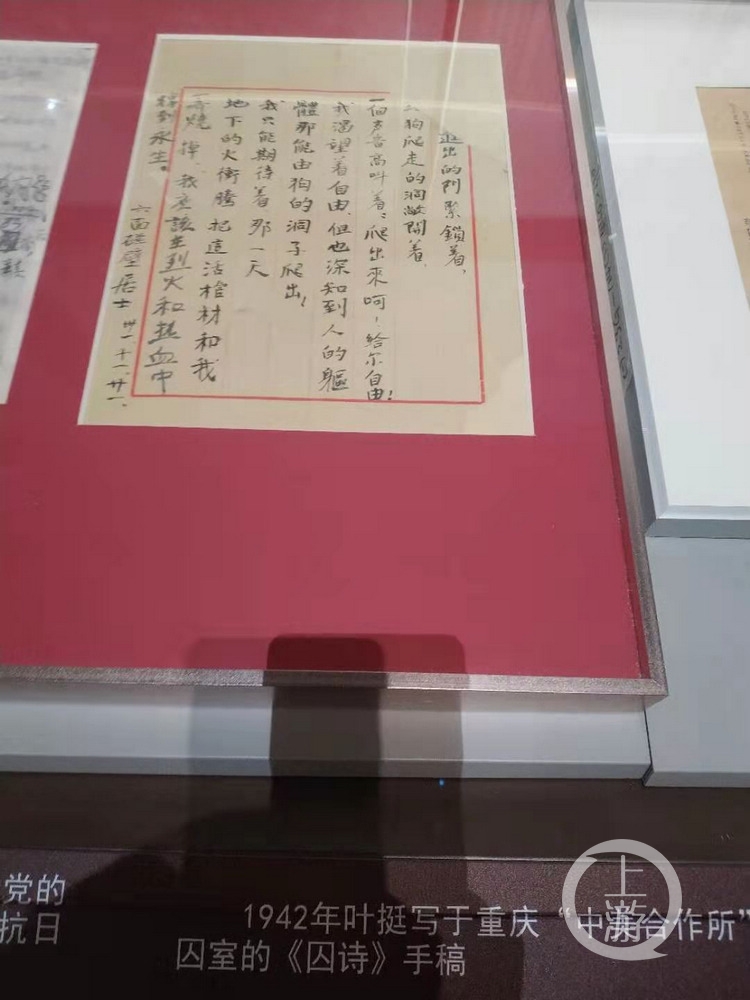 進出的門緊鎖着，
狗爬走的洞敞開着，
一個声音高叫着：爬出來呵，給尔自由！
我渴望着自由，但也深知到人的軀
體那能由狗的洞子爬出！
我只能期待着那一天
地下的火衝騰把這活棺材和我
一齊燒掉，我應該在烈火和热血中
得到永生。
六面碰壁居士 卅一、十一、廿一、
党的
抗日
1942年叶挺写于重庆“中美合作所”
囚室的《囚诗》手稿
上游